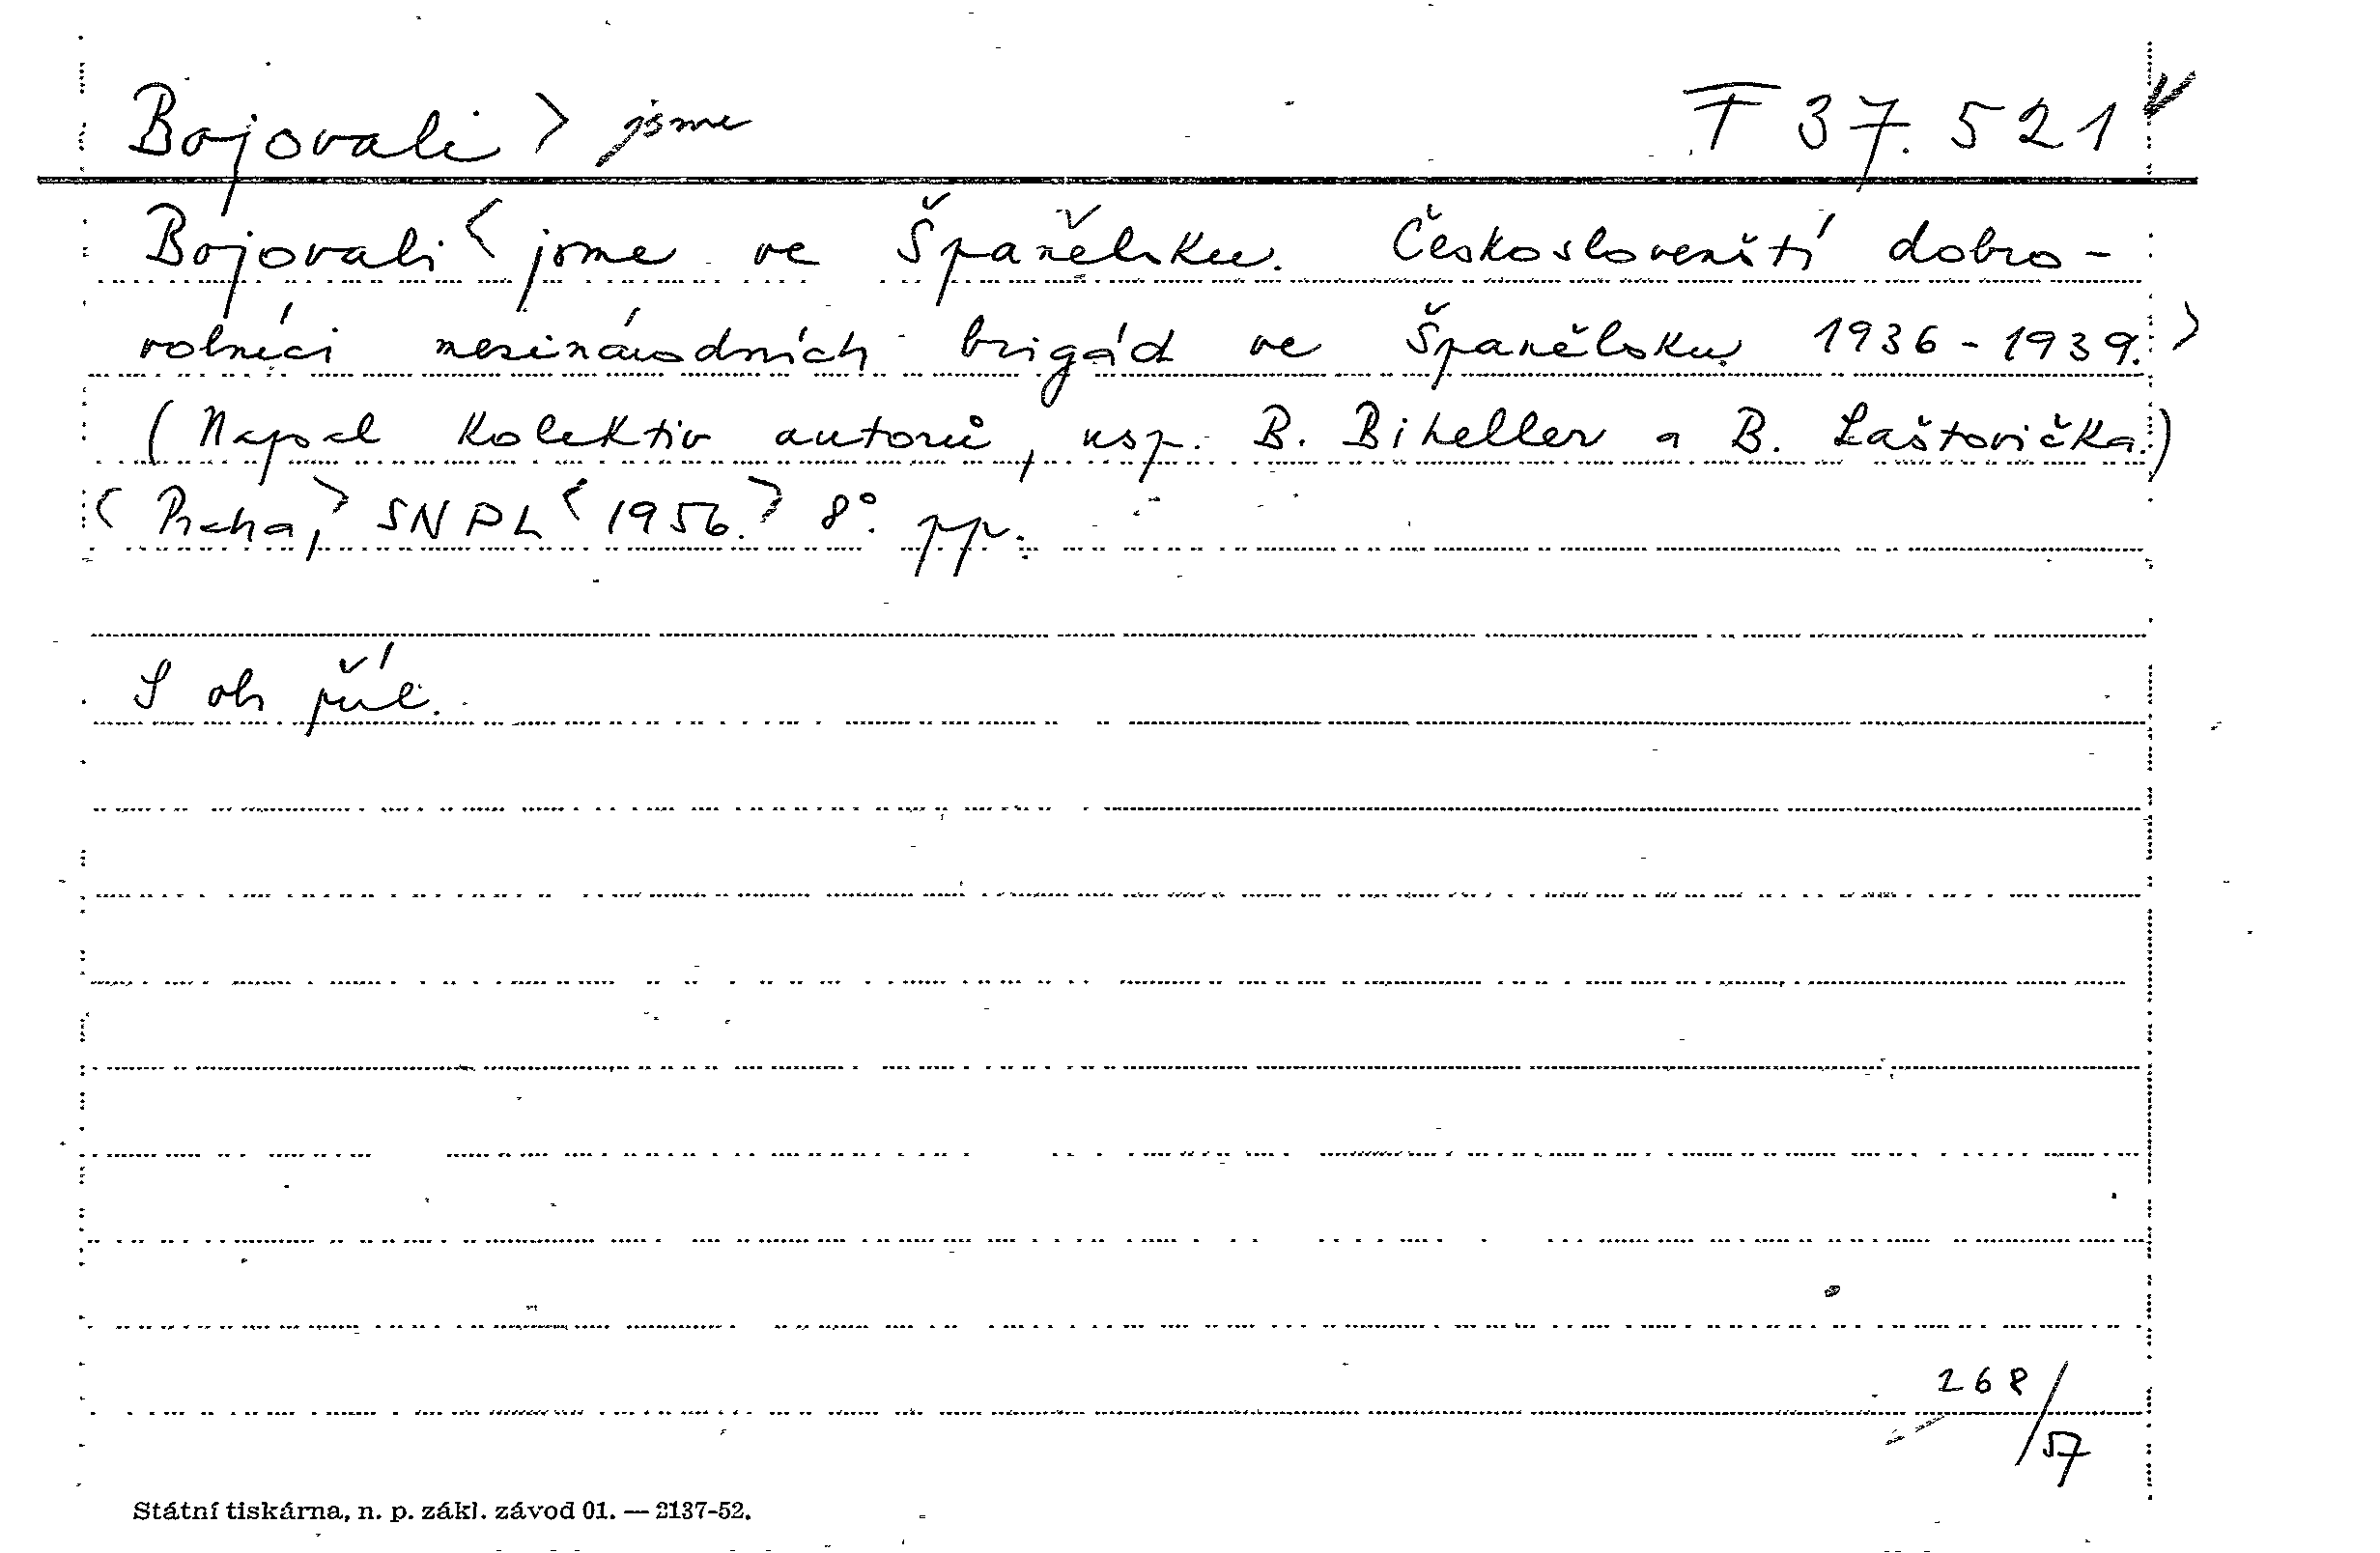 Bojovali > jsme
F 37.521
Bojovali < jsme ve Španělsku. Českoslovenští dobro-
volníci mezinárodních brigád ve Španělsku 1936-1939. >
(Napsal kolektiv autorů, usp. B. Biheller a B. Laštovička.)
< Praha, > SNPL < 1956. > 8°. pp.
S obr. příl.
268/57
Státní tiskárna, n. p. zákl. závod 01. — 2137-52.